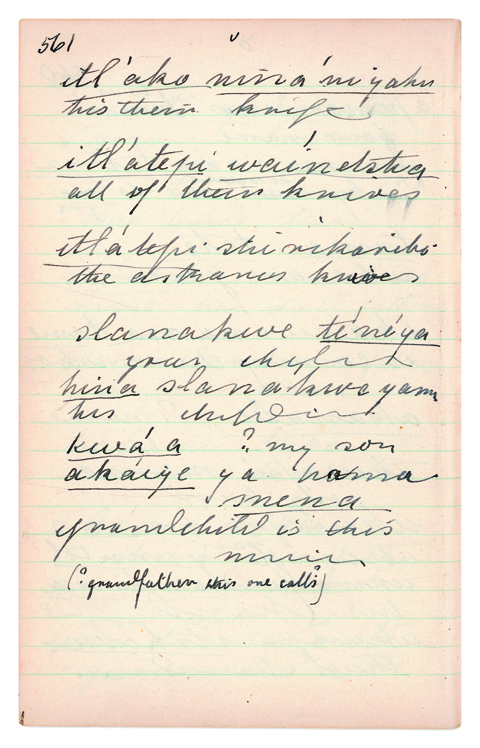 561
itl'ako niná'ni yahu
his them knife
itl'átepi waíndstra
all of their knives
itlátepi
the knives
slanakwe téneya
your children
hina slanakwe yamu
his children
kwá a ? my son
akáiye ya hama
mena
grandchild is this
mine
(? grandfather this one calls?)